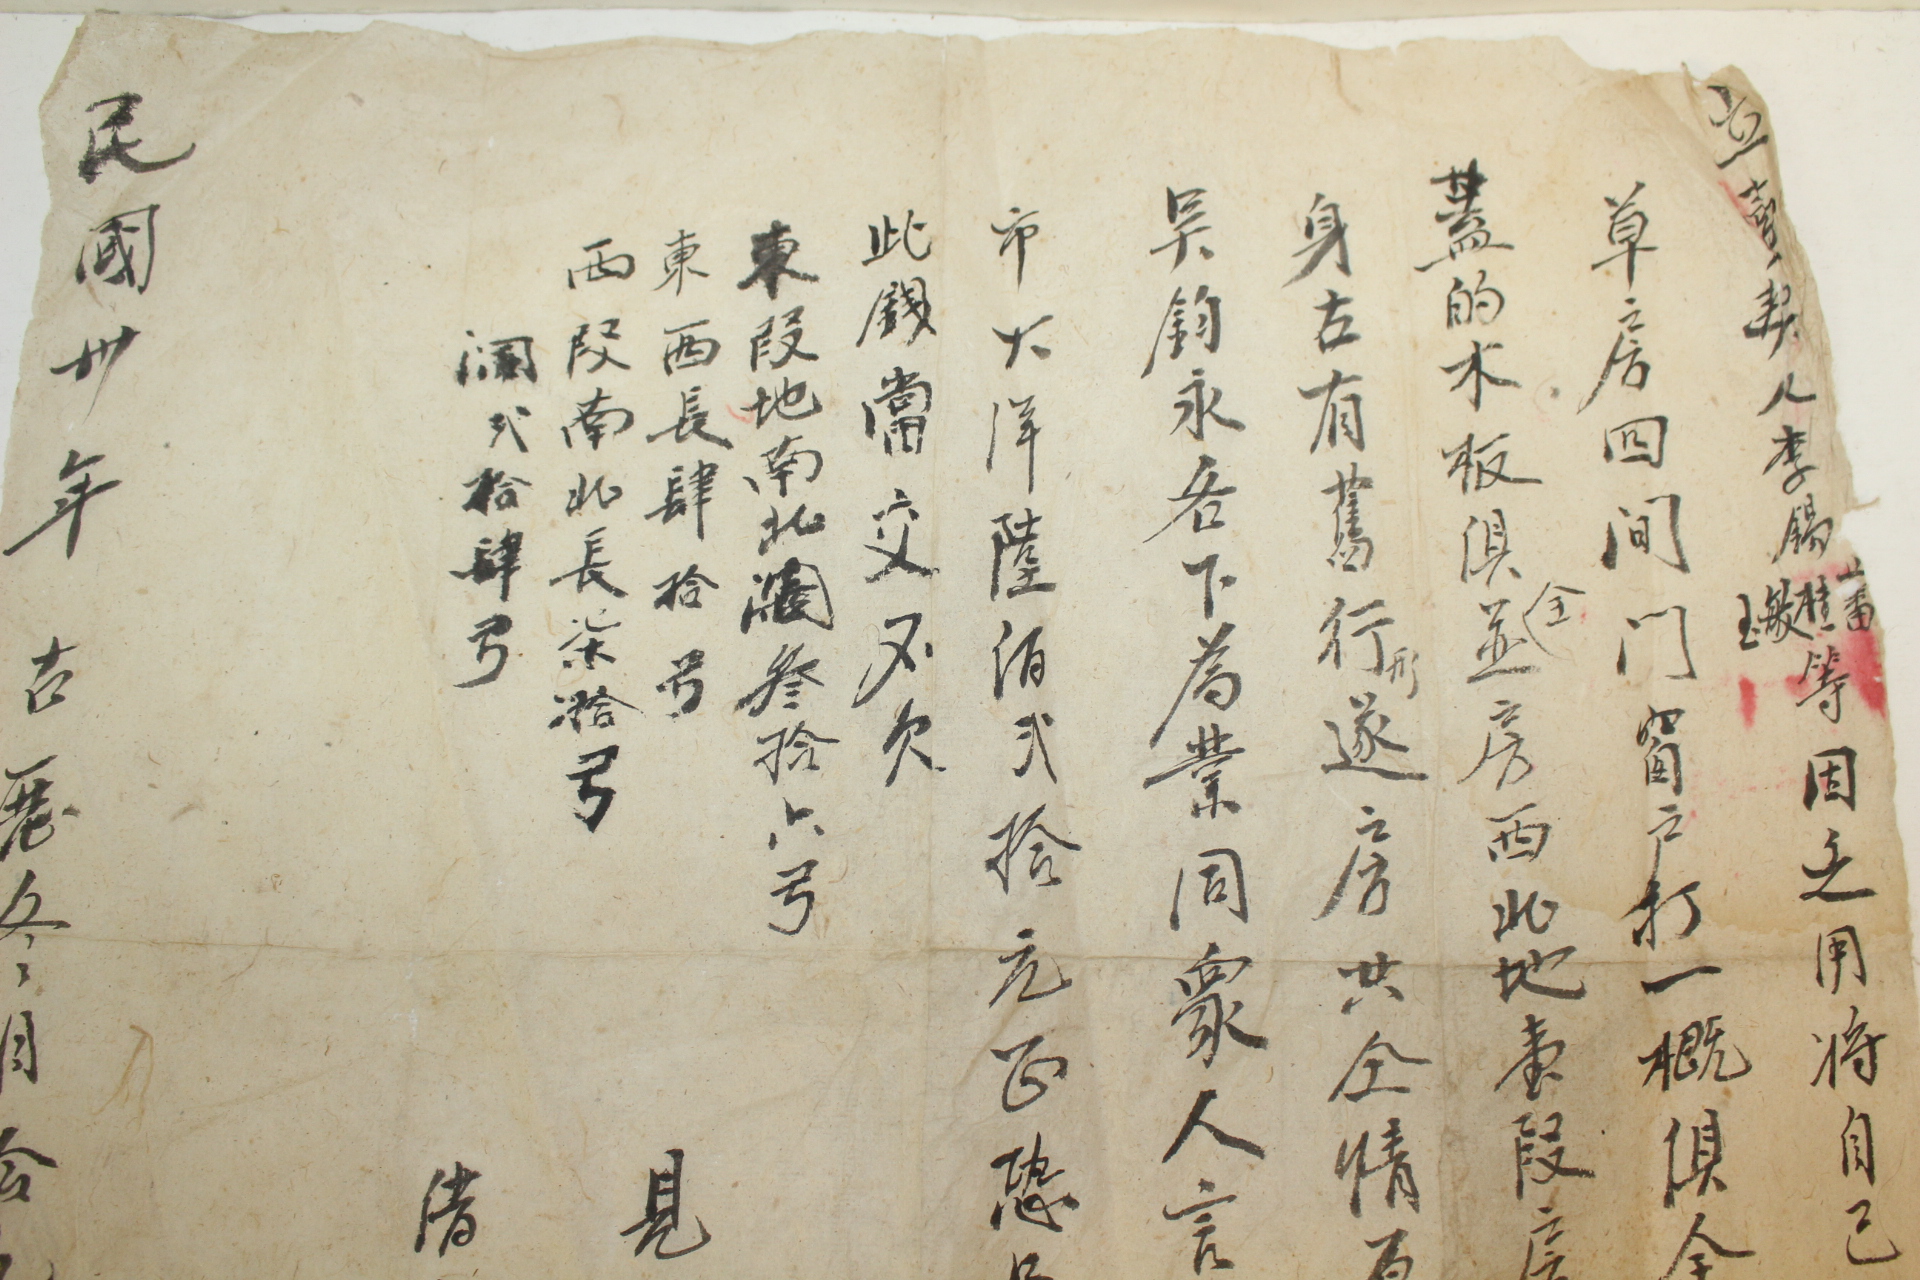 立賣契人李錫蕃桂敏玉等因乏用將自己
草房四间門窗戸打一概俱全
蓋的木板俱全並房西北地壹段房
身古有舊行形遂房共仝情
吳鈞永名下為業同衆人言
市大洋陸佰弍拾元正恐
此錢當交不欠
東段地南北濶叁拾六弓
東西長肆拾弓
西段南北長柒拾弓
濶弍拾肆弓
見
清
民國卅年古曆冬月